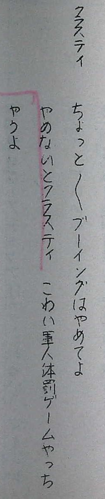 クラスティ　ちょっと〳〵ブーイングはやめてよ
やめないとクラスティ　こわい軍人体罰ゲームやっち
ゃうよ